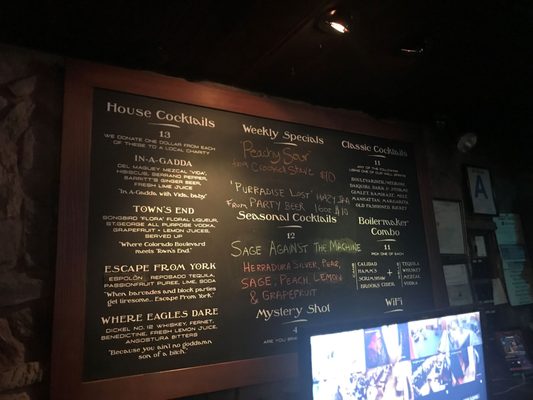 House Cocktails
13
WE DONATE ONE DOLLAR FROM EACH
OF THESE TO A LOCAL CHARITY
IN-A-GADDA
DEL MAGUEY MEZCAL "VIDA",
HIBISCUS, SERRANO PEPPER,
BARRITT'S GINGER BEER,
FRESH LIME JUICE
"In-A-Gadda, with Vida, baby"
TOWN'S END
SONGBIRD "FLORA" FLORAL LIQUEUR,
ST.GEORGE ALL PURPOSE VODKA,
GRAPEFRUIT + LEMON JUICES,
SERVED UP
"Where Colorado Boulevard
meets Town's End."
ESCAPE FROM YORK
ESPOLÓN REPOSADO TEQUILA,
PASSIONFRUIT PUREE, LIME, SODA
"When barcades and block parties
get tiresome... Escape From York."
WHERE EAGLES DARE
DICKEL NO. 12 WHISKEY, FERNET,
BENEDICTINE, FRESH LEMON JUICE,
ANGOSTURA BITTERS
"Because you ain't no goddamn
son of a bitch."
Weekly Specials
Peachy Sour
$10
'PURRADISE LOST' HAZY IPA
FROM PARTY BEER
$10
Seasonal Cocktails
12
SAGE AGAINST THE MACHINE
HERRADURA SILVER, PEAR,
SAGE, PEACH, LEMON
& GRAPEFRUIT
Mystery Shot
4
Classic Cocktails
11
BOULEVARDIER, NEGRONI,
DAIQUIRI, DARK & STORMY,
GIMLET, MAI TAI,
MANHATTAN, MARGARITA,
OLD FASHIONED, SIDECAR
Boilermaker
Combo
11
CALIDAD
HAMM'S
BROOKS CIDER
+
TEQUILA
WHISKEY
MEZCAL
VODKA
WiFi
A